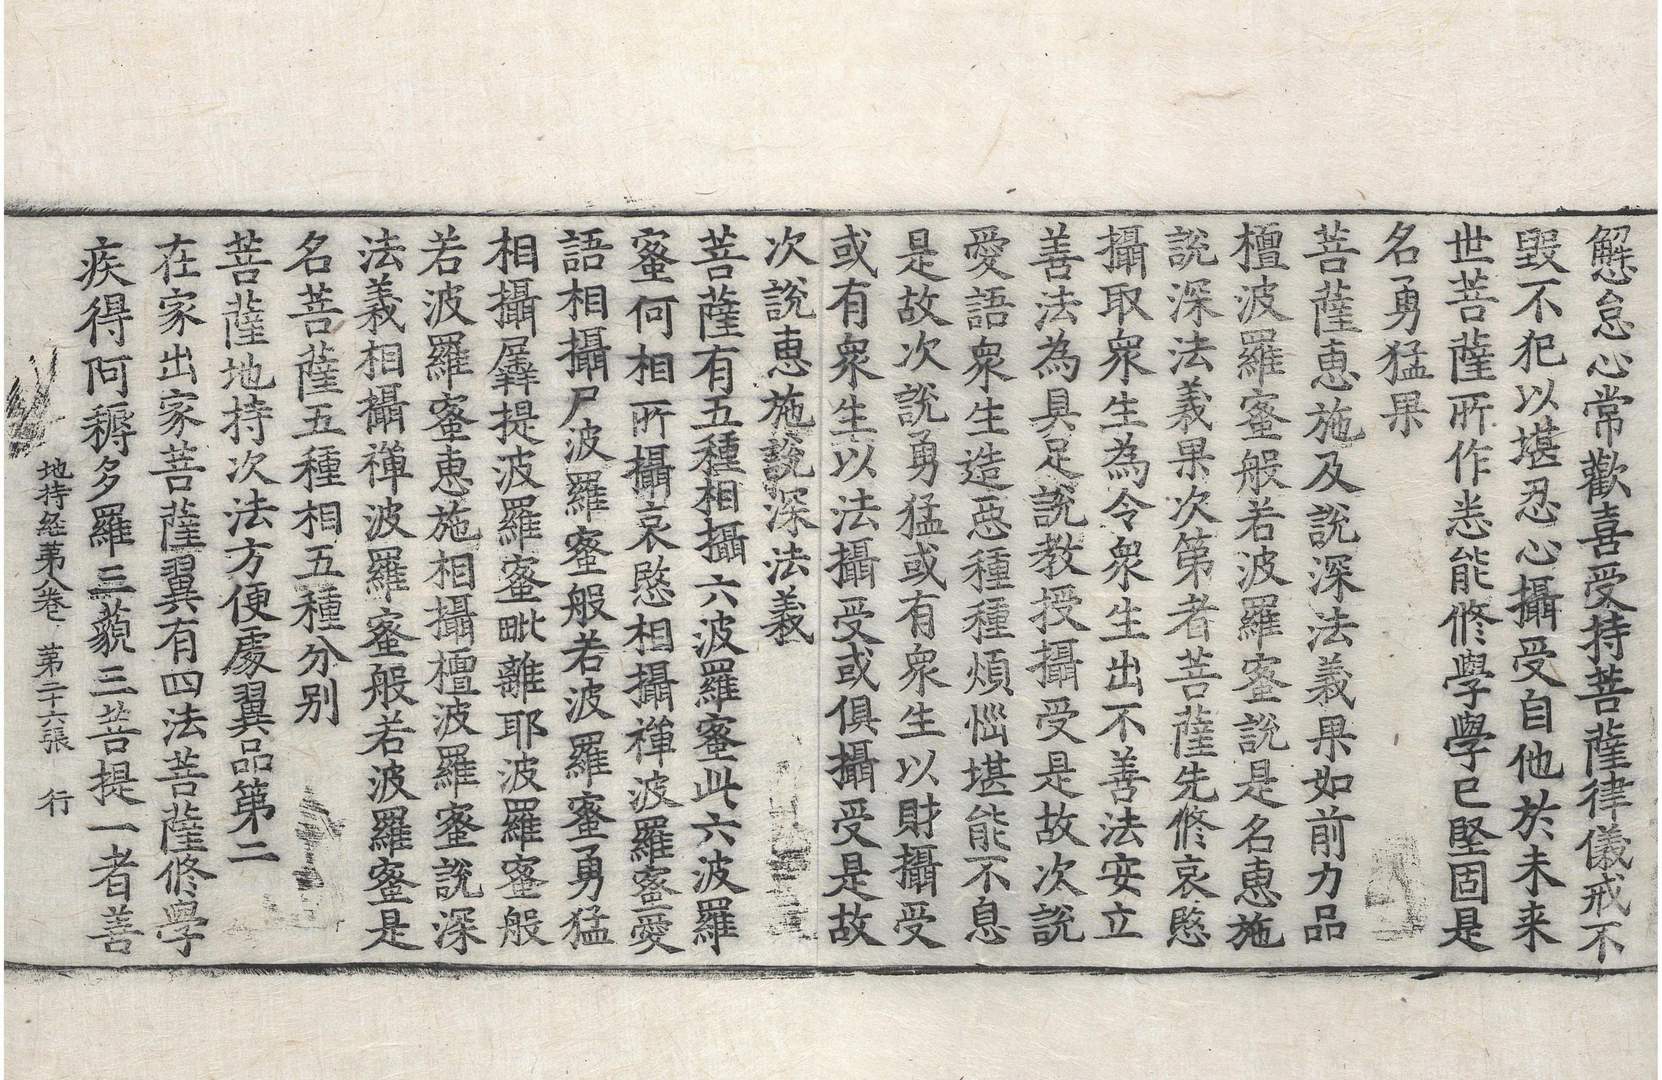 懈怠心常歡喜受持菩薩律儀戒不
毀不犯以堪忍心攝受自他於未来
世菩薩所作悉能修學學已堅固是
名勇猛果
菩薩惠施及說深法義果如前力品
檀波羅蜜般若波羅蜜說是名惠施
說深法義果次第者菩薩先修哀愍
攝取衆生為令衆生出不善法安立
善法為具足說教授攝受是故次說
愛語衆生造惡種種煩惱堪能不息
是故次說勇猛或有衆生以財攝受
或有衆生以法攝受或俱攝受是故
次說惠施說深法義
菩薩有五種相攝六波羅蜜此六波羅
蜜何相所攝哀愍相攝禪波羅蜜愛
語相攝尸波羅蜜般若波羅蜜勇猛
相攝羼提波羅蜜毗離耶波羅蜜般
若波羅蜜惠施相攝檀波羅蜜說深
法義相攝禪波羅蜜般若波羅蜜是
名菩薩五種相五種分别
菩薩地持次法方便處翼品第二
在家出家菩薩翼有四法菩薩修學
疾得阿耨多羅三藐三菩提一者善
地持経第八卷 第二十六張 行